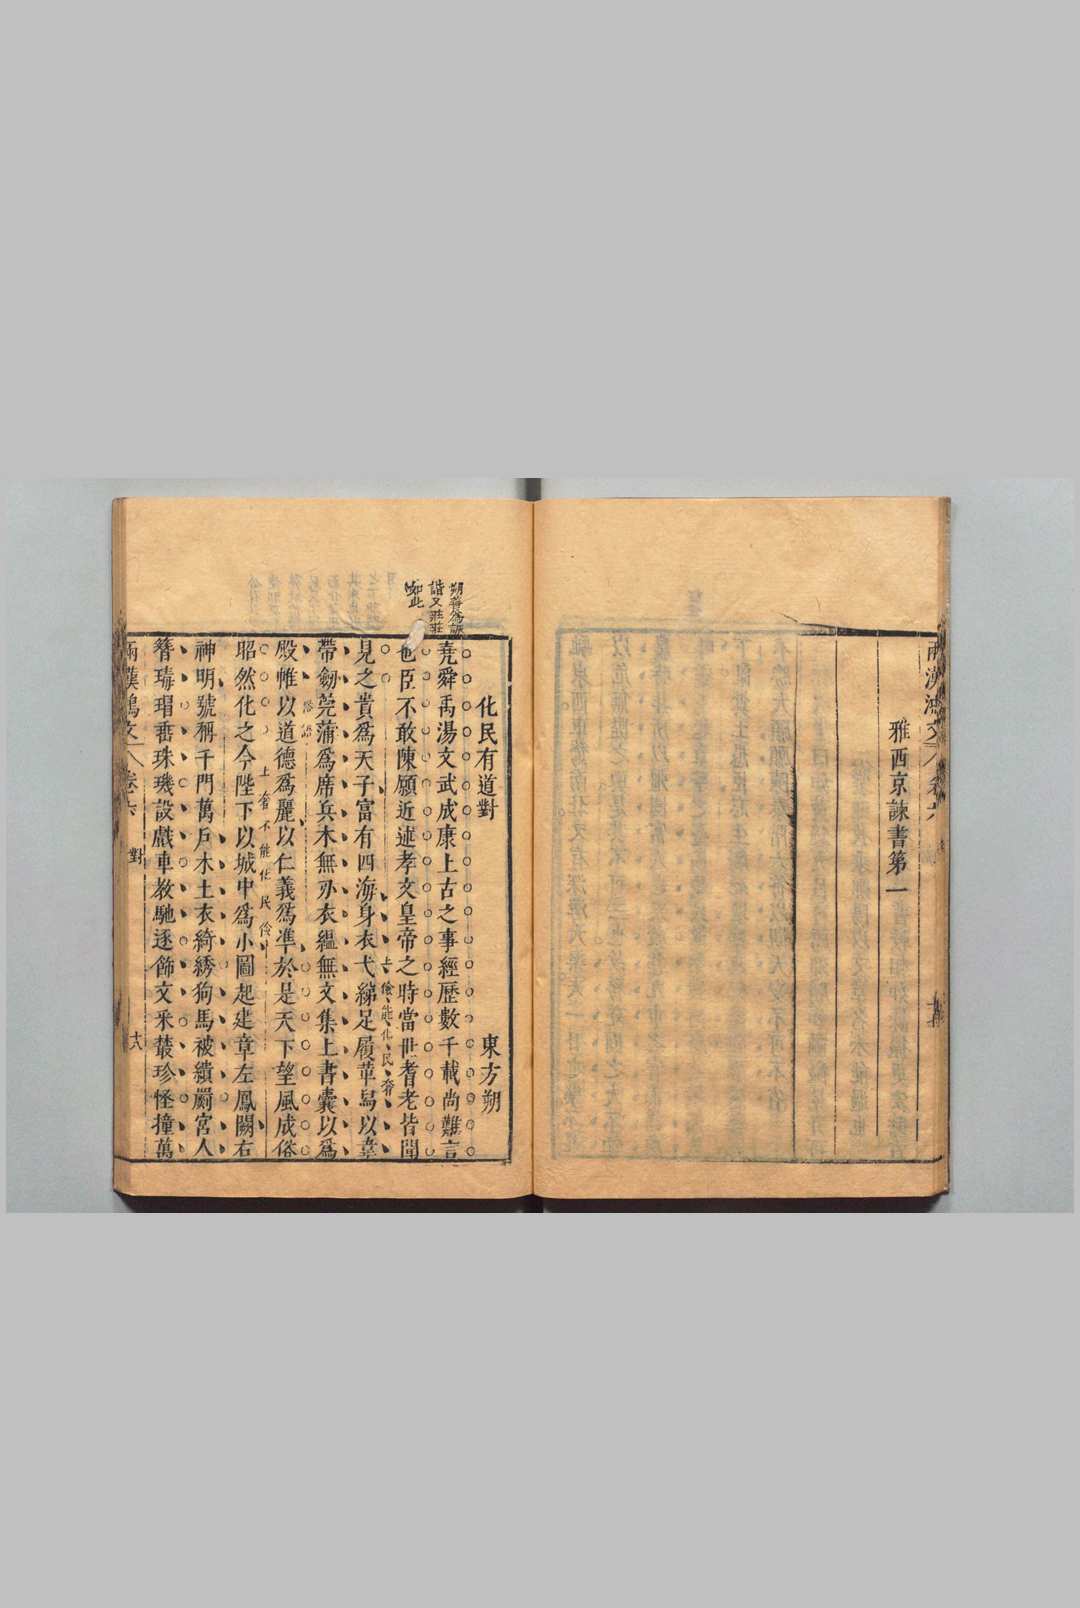 兩漢鴻文 卷六
雅西京諫書第一
朔蓄爲詼
諧又莊莊
如此
化民有道對 東方朔
堯舜禹湯文武成康上古之事經歷數千載尚難言
也臣不敢陳願近述孝文皇帝之時當世耆老皆聞
上儉能化民奢
見之貴爲天子富有四海身衣弋綈足履革舄以韋
帶劒莞蒲爲席兵木無刃衣緼無文集上書囊以爲
俗語
殿帷以道德爲麗以仁義爲準於是天下望風成俗
上奢不能化民儉
昭然化之今陛下以城中爲小圖起建章左鳳闕右
神明號稱千門萬戶木土衣綺綉狗馬被繢罽宮人
簪瑇瑁垂珠璣設戲車敎馳逐飾文采䕺珍怪撞萬
兩漢鴻文 卷六 對 十八